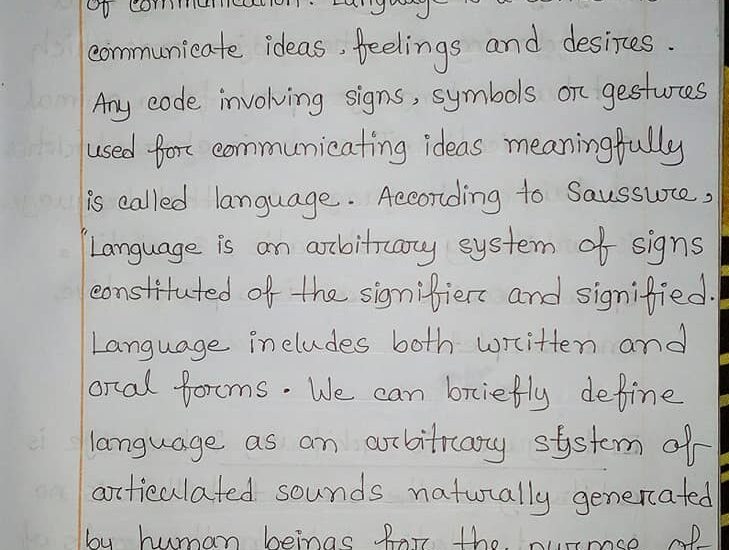 of communication. Language is a
communicate ideas, feelings and desires.
Any code involving signs, symbols or gestures
used for communicating ideas meaningfully
is called language. According to Saussure,
"Language is an arbitrary system of signs
constituted of the signifier and signified.
Language includes both written and
oral forms. We can briefly define
language as an arbitrary system of
articulated sounds naturally generated
by human beings for the purpose of